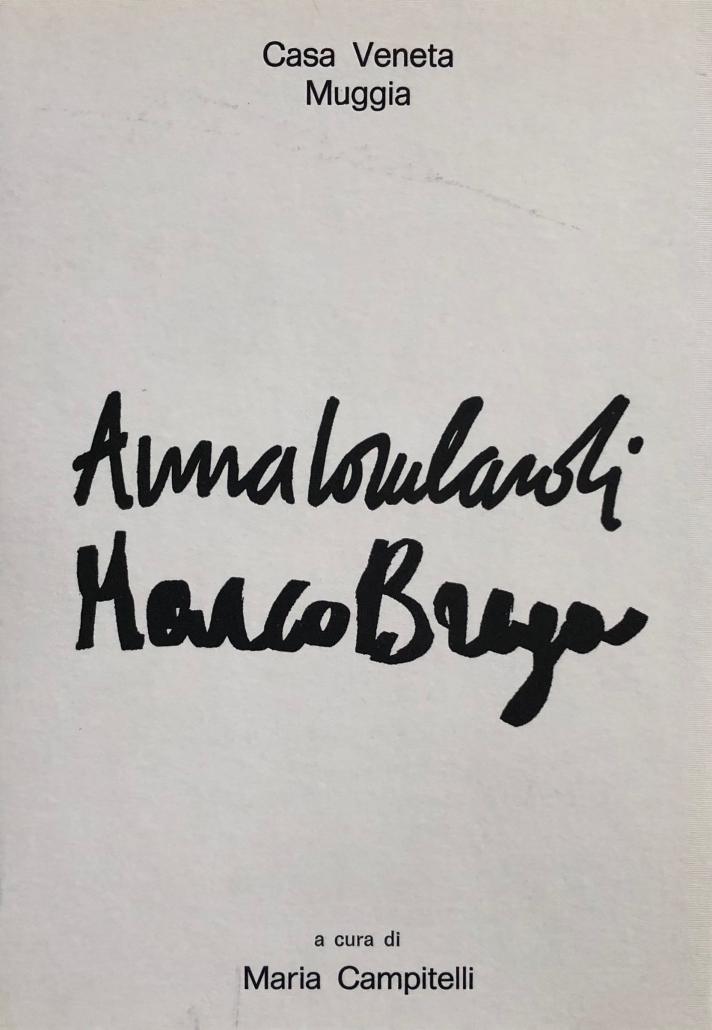 Casa Veneta
Muggia
Anna Lombardi
Marco Braga
a cura di
Maria Campitelli